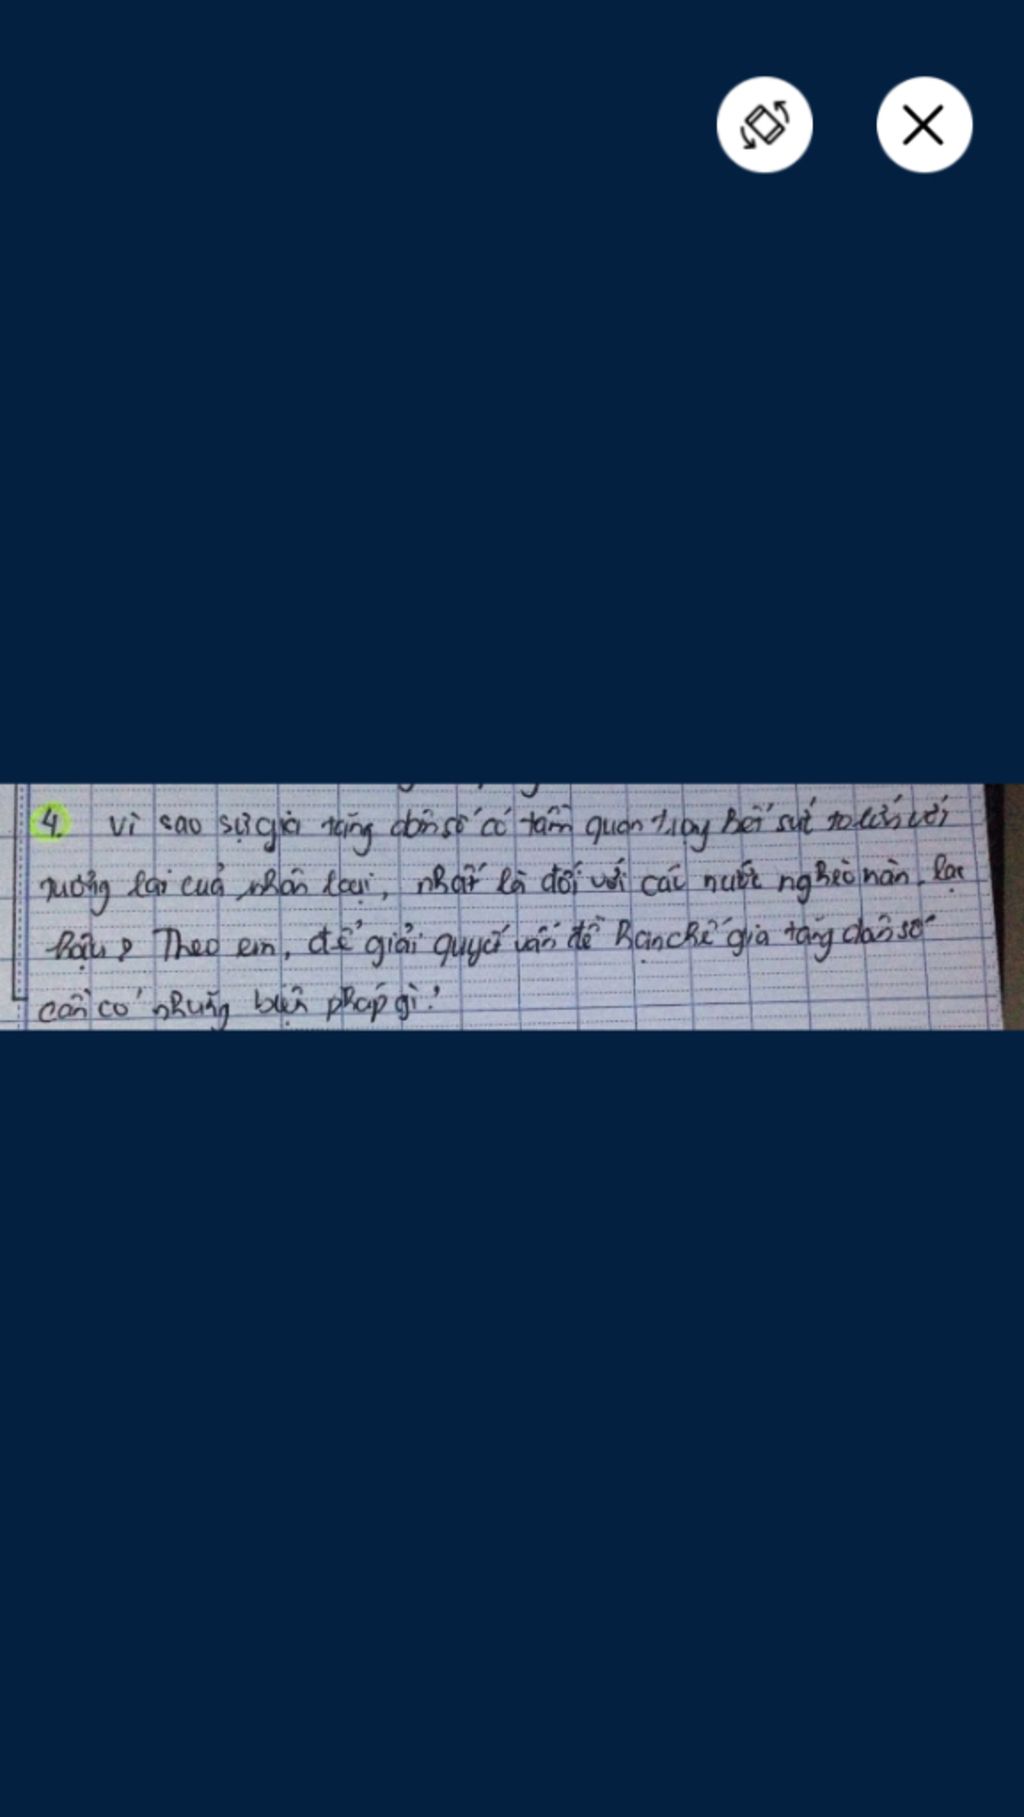 4. Vì sao sự gia tăng dân số có tầm quan trọng hết sức to lớn với
tương lai của nhân loại, nhất là đối với các nước nghèo nàn, lạc
hậu? Theo em, để giải quyết vấn đề hạn chế gia tăng dân số
cần có những biện pháp gì?